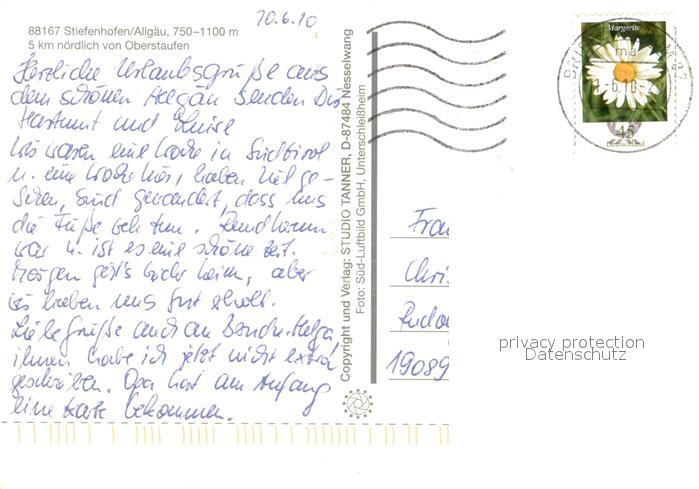 20.6.10
88167 Stiefenhofen/Allgäu, 750–1100 m
5 km nördlich von Oberstaufen
Herzliche Urlaubsgrüße aus
dem schönen Allgäu senden Dir
Hartmut und Luise
Wir waren eine Woche in Südtirol
u. eine Woche hier, haben viel ge-
sehen, sind gewandert, dass uns
die Füße weh tun. Rundherum
war u. ist es eine schöne Zeit.
Morgen geht's wieder heim, aber
wir haben uns gut erholt.
Liebe Grüße auch an Helga,
ihnen habe ich jetzt nicht extra
geschrieben. Opa hat am Anfang
eine Karte bekommen.
Copyright und Verlag: STUDIO TANNER, D-87484 Nesselwang
Foto: Süd-Luftbild GmbH, Unterschleißheim
Margerite
45
Deutschland
Frau
Chris
Rudo
19089
privacy protection
Datenschutz